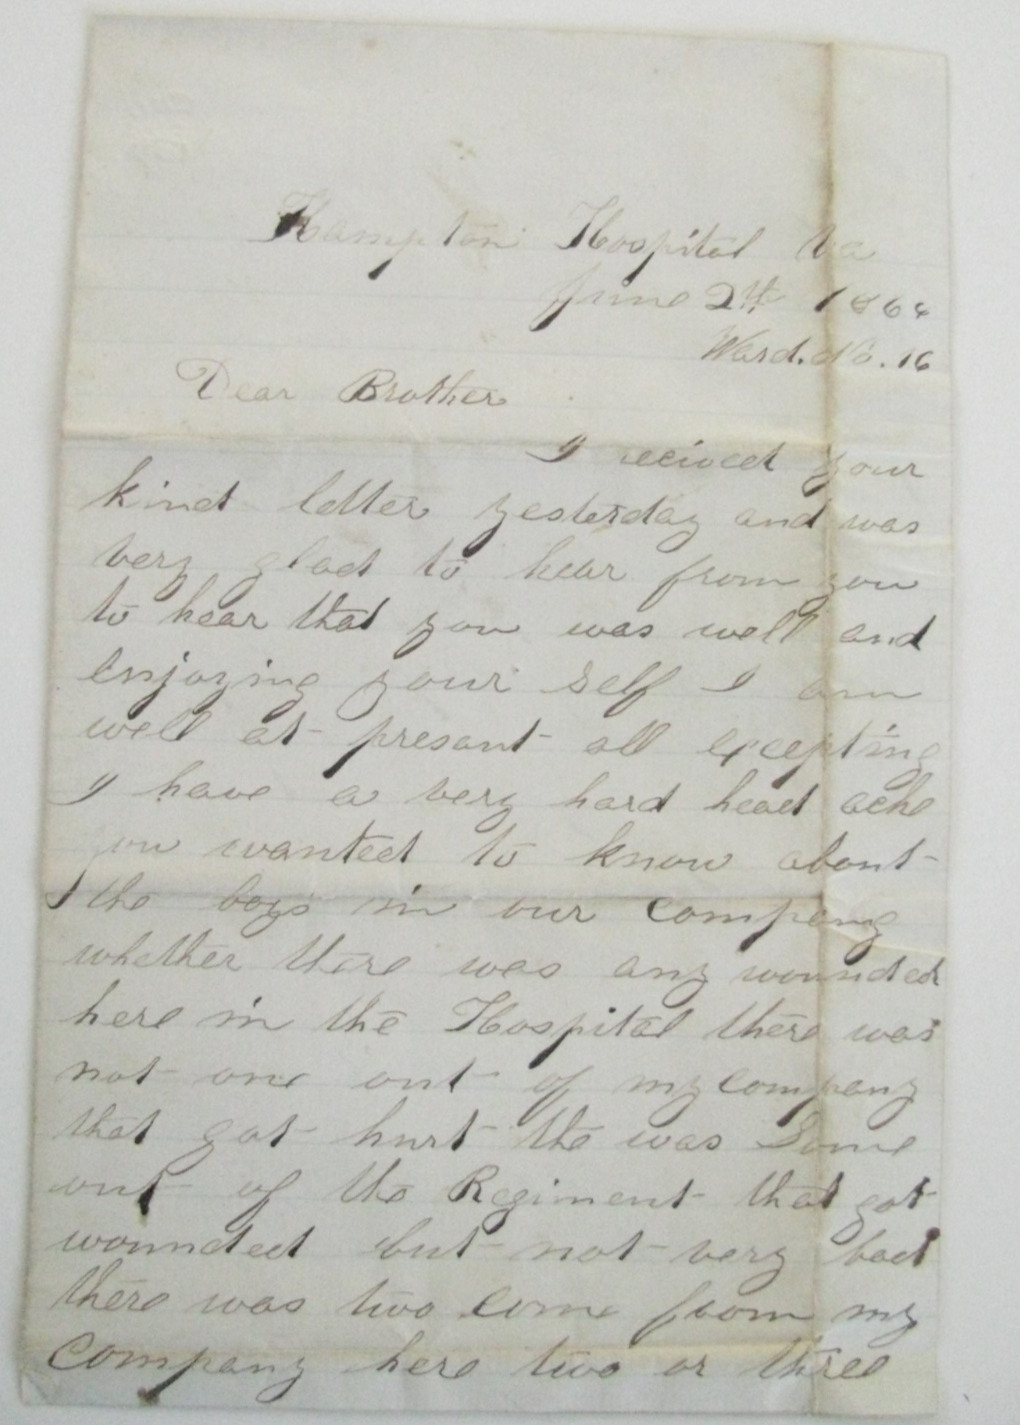 Hampton Hospital Va
June 2th 1864
Ward. No. 16
Dear Brother
I recived your
kind letter yesterday and was
very glad to hear from you
to hear that you was well and
enjoying your self I am
well at presant all excepting
I have a very hard head ache
you wanted to know about
the boys in our company
whether there was any wounded
here in the Hospital there was
not one out of my company
that got hurt the was Some
out of the Regiment that got
wounded but not very bad
there was two come from my
Company here two or three